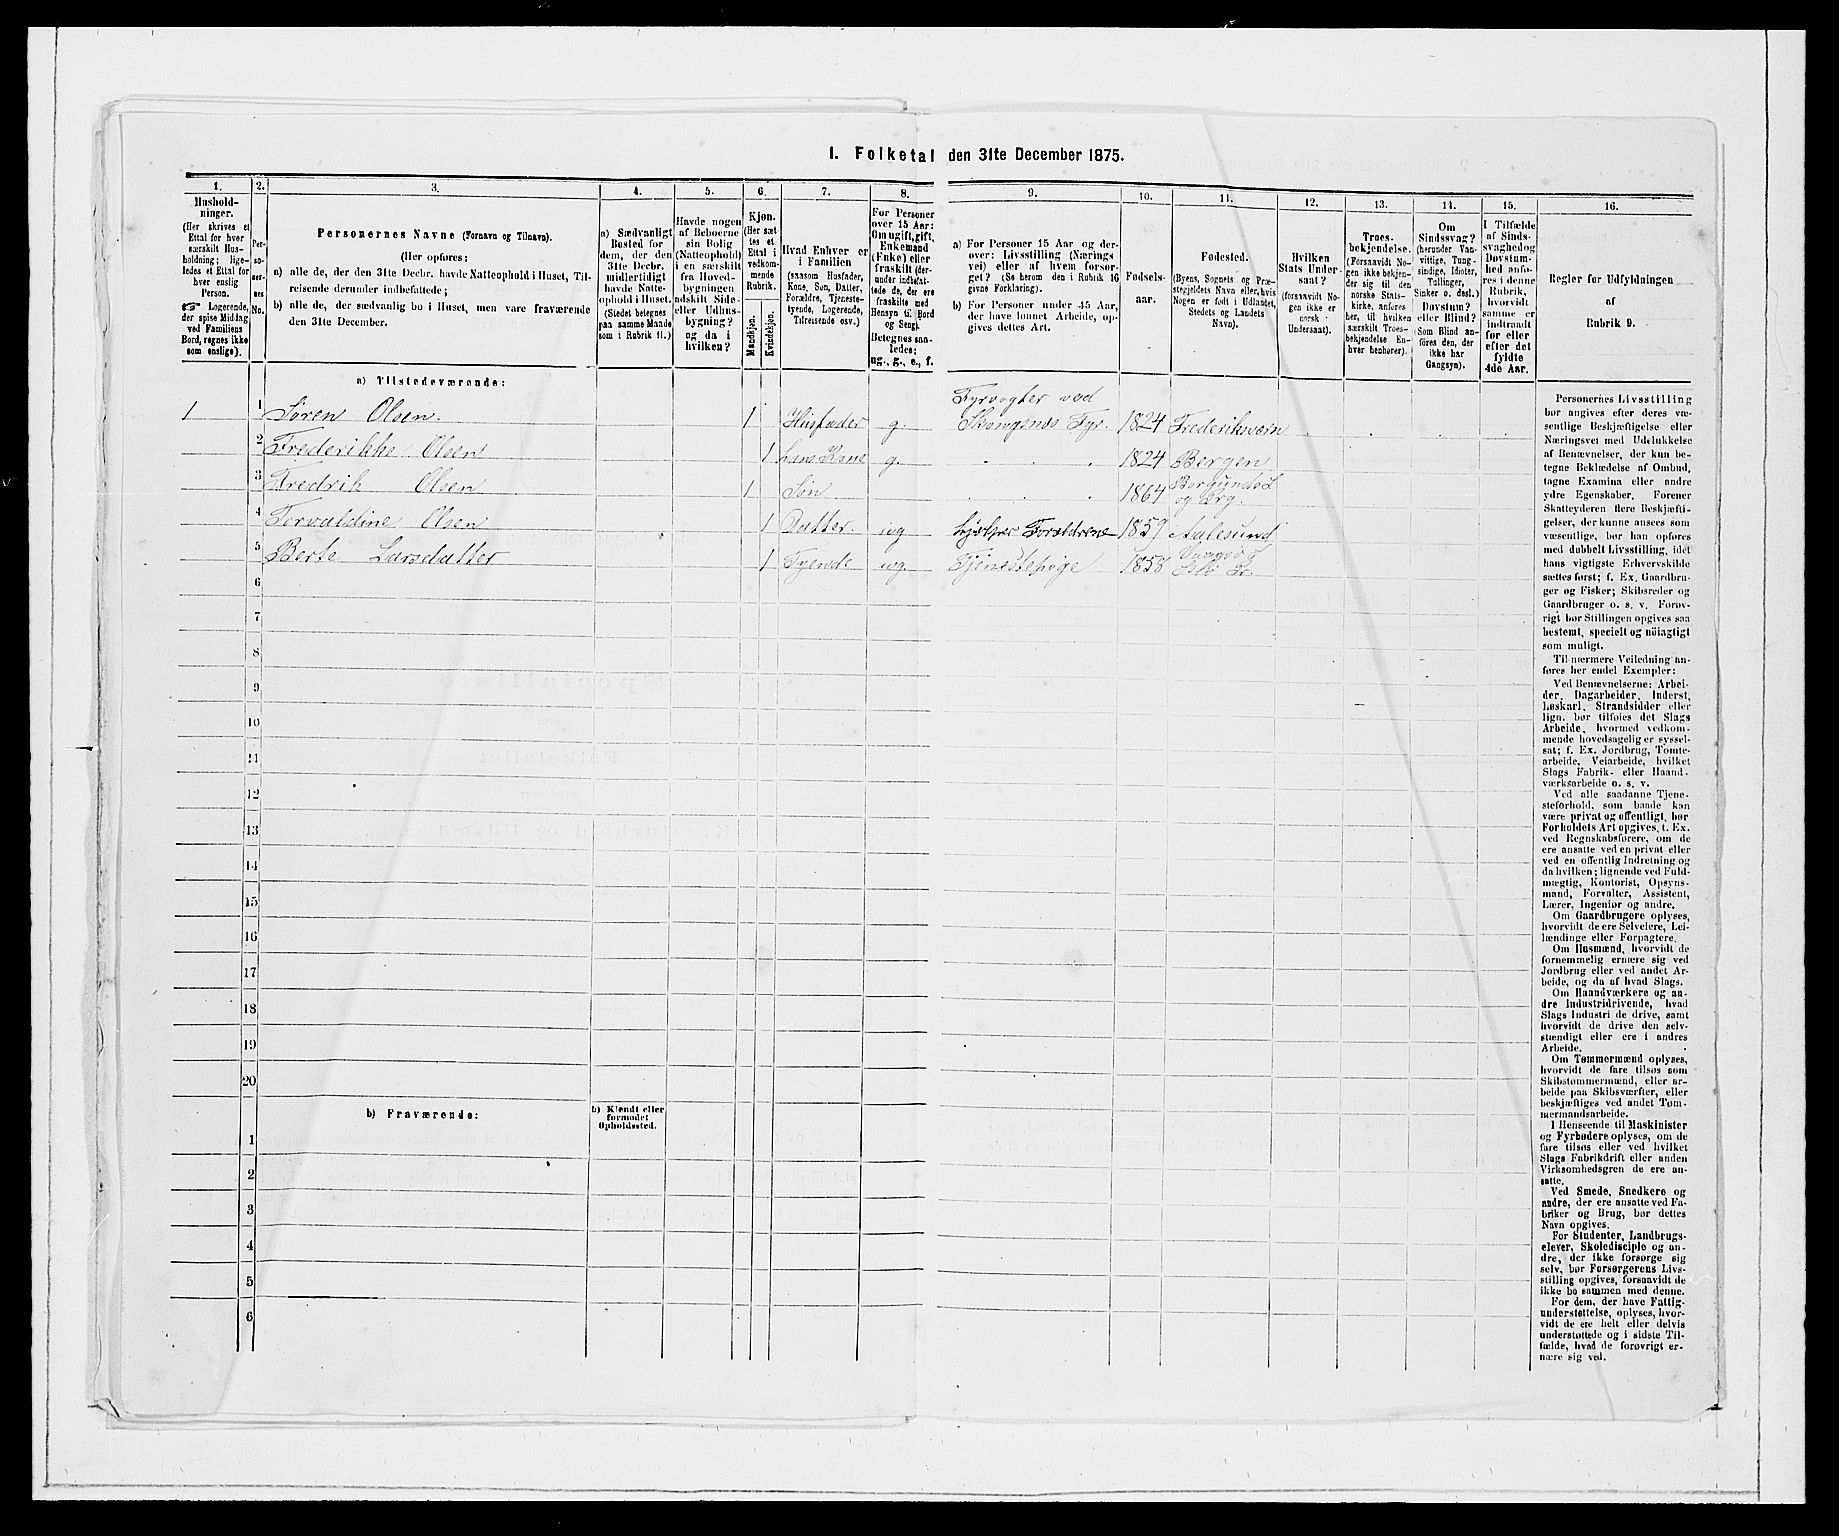 I. Folketal den 31te December 1875.
1.
Hushold-
ninger.
(Her skrives et
Ettal for hver
særskilt Hus-
holdning; lige-
ledes et Ettal for
hver enslig
Person.
☞ Logerende,
der spise Middag
ved Familiens
Bord, regnes ikke
som enslige).
2.
Per-
so-
ner-
nes
No.
3.
Personernes Navne (Fornavn og Tilnavn).
(Her opføres:
a) alle de, der den 31te Decbr. havde Natteophold i Huset, Til-
reisende derunder indbefattede;
b) alle de, der sædvanlig bo i Huset, men vare fraværende
den 31te December.
4.
a) Sædvanligt
Bosted for
dem, der den
31te Decbr.
midlertidigt
havde Natte-
ophold i Huset.
(Stedet betegnes
paa samme Maade
som i Rubrik 11.)
5.
Havde nogen
af Beboerne
sin Bolig
(Natteophold)
i en særskilt
fra Hoved-
bygningen
adskilt Side-
eller Udhus-
bygning?
og da i
hvilken?
6.
Kjøn.
(Her sæt-
tes et
Ettal i
vedkom-
mende
Rubrik.
Mandkjøn.
Kvindekjøn.
7.
Hvad Enhver er
i Familien
(saasom Husfader,
Kone, Søn, Datter,
Forældre, Tjeneste-
tyende, Logerende,
Tilreisende osv.)
8.
For Personer
over 15 Aar:
Om ugift, gift,
Enkemand
(Enke) eller
fraskilt (der-
under indbefat-
tede de, der ere
fraskilte med
Hensyn til Bord
og Seng).
Betegnes saa-
ledes:
ug., g., e., f.
9.
a) For Personer 15 Aar og der-
over: Livsstilling (Nærings
vei) eller af hvem forsør-
get? (Se herom den i Rubrik 16
givne Forklaring).
b) For Personer under 15 Aar,
der have lønnet Arbeide, op-
gives dettes Art.
10.
Fødsels-
aar.
11.
Fødested.
(Byens, Sognets og Præ-
stegjeldets Navn eller, hvis
Nogen er født i Udlandet,
Stedets og Landets
Navn).
12.
Hvilken
Stats Under-
saat?
(forsaavidt No-
gen ikke er
norsk
Undersaat).
13.
Troes-
bekjendelse.
(Forsaavidt No-
gen ikke bekjen-
der sig til den
norske Stats-
kirke, anføres
her, til hvilken
særskilt Troes-
bekjendelse En-
hver henhører).
14.
Om
Sindssvag?
(herunder Van-
vittige, Tung-
sindige, Idioter,
Tullinger,
Sinker o. desl.)
Døvstum?
eller Blind?
(Som Blind an-
føres den, der
ikke har
Gangsyn).
15.
I Tilfælde
af Sinds-
svaghed og
Døvstum-
hed anfø-
res i denne
Rubrik,
hvorvidt
samme er
indtraadt
før eller
efter det
fyldte
4de Aar.
16.
Regler for Udfyldningen
af
Rubrik 9.
a) Tilstedeværende:
1 1 Søren Olsen. 1 Husfader g. Fyrvogter ved
Skongsnæs Fyr. 1824 Frederiksværn
2 Frederikke Olsen 1 hans Kone g. 1824 Bergen
3 Fredrik Olsen 1 Søn 1864
og Brg.
4 Torvaldine Olsen 1 Datter. ug hjælper Forældrene 1859 Aalesund
5 Berte Larsdatter 1 Tyende ug. Tjenestepige 1858
6
7
8
9
10
11
12
13
14
15
16
17
18
19
20
b) Fraværende:
b) Kjendt eller
formodet
Opholdssted.
1
2
3
4
5
6
Personernes Livsstilling
bør angives efter deres væ-
sentlige Beskjæftigelse eller
Næringsvei med Udelukkelse
af Benævnelser, der kun be-
tegne Beklædelse af Ombud,
tagne Examina eller andre
ydre Egenskaber. Forener
Skatteyderen flere Beskjæfti-
gelser, der kunne ansees som
væsentlige, bør han opføres
med dobbelt Livsstilling, idet
hans vigtigste Erhvervskilde
sættes først; f. Ex. Gaardbru-
ger og Fisker; Skibsreder og
Gaardbruger o. s. v. Forøv-
rigt bør Stillingen opgives saa
bestemt, specielt og nöiagtigt
som muligt.
Til nærmere Veiledning an-
føres her endel Exempler:
Ved Benævnelserne: Arbei-
der, Dagarbeider, Inderst,
Løskarl, Strandsidder eller
lign. bør tilføies det Slags
Arbeide, hvormed vedkom-
mende hovedsagelig er syssel-
sat; f. Ex. Jordbrug, Tomte-
arbeide, Veiarbeide, hvilket
Slags Fabrik- eller Haand-
værksarbeide o. s. v.
Ved alle saadanne Tjene-
steforhold, som baade kan
være privat og offentligt, bør
Forholdets Art opgives, t. Ex.
ved Regnskabsførere, om de
ere ansatte ved en privat eller
ved en offentlig Indretning og
da hvilken; lignende ved Fuld-
mægtig, Kontorist, Opsyns-
mand, Forvalter, Assistent,
Lærer, Ingeniør og andre.
Om Gaardbrugere oplyses,
hvorvidt de ere Selveiere, Lei-
lændinge eller Forpagtere.
Om Husmænd, hvorvidt de
fornemmelig ernære sig ved
Jordbrug eller ved andet Ar-
beide, og da af hvad Slags.
Om Haandværkere og an-
dre Industridrivende, hvad
Slags Industri de drive, samt
hvorvidt de drive den selv-
stændigt eller ere i andres
Arbeide.
Om Tømmermænd oplyses,
hvorvidt de fare tilsøs som
Skibstømmermænd, eller ar-
beide paa Skibsværfter, eller
beskjæftiges ved andet Tøm-
mermandsarbeide.
I Henseende til Maskinister
og Fyrbødere oplyses, om de
fare tilsøs eller ved hvilket
Slags Fabrikdrift eller anden
Virksomhedsgren de ere an-
satte.
Ved Smede, Snedkere og
andre, der ere ansatte ved Fa-
briker og Brug, bør dettes
Navn opgives.
For Studenter, Landbrugs-
elever, Skoledisciple og an-
dre, der ikke forsørge sig
selv, bør Forsørgerens Livs-
stilling opgives, forsaavidt de
ikke bo sammen med denne.
For dem, der have Fattig-
understøttelse, oplyses, hvor-
vidt de ere helt eller delvis
understøttede og i sidste Til-
fælde, hvad de forøvrigt er-
nære sig ved.